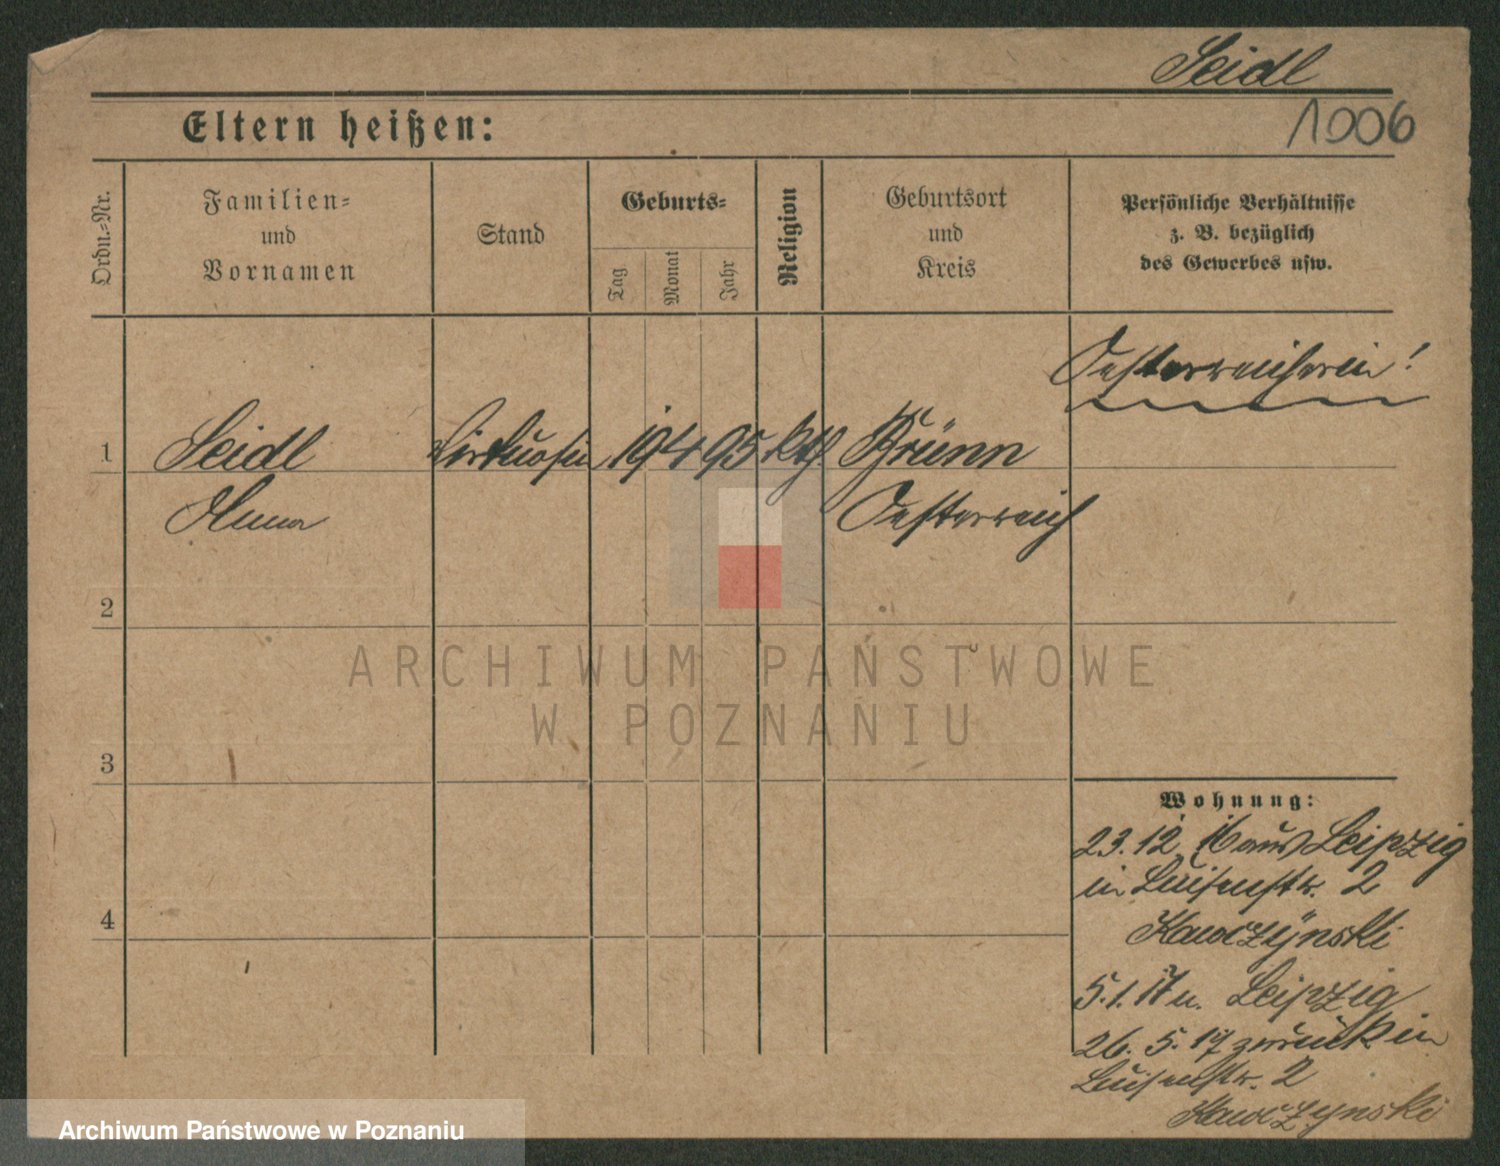 Seidl
1006
Eltern heißen:
Ordn.-Nr.
Familien-
und
Vornamen
Stand
Geburts-
Tag
Monat
Jahr
Religion
Geburtsort
und
Kreis
Persönliche Verhältnisse
z. B. bezüglich
des Gewerbes usw.
Oesterreicherin!
1 Seidl 19 4 95 kth Brünn
Oesterreich
2
ARCHIWUM PAŃSTWOWE
W POZNANIU
3
Wohnung:
23.12.16 aus Leipzig
in Luisenstr. 2
4
Kawczynski
5.1.17 n. Leipzig
26.5.17 zurück in
Luisenstr. 2
Kawczynski
Archiwum Państwowe w Poznaniu